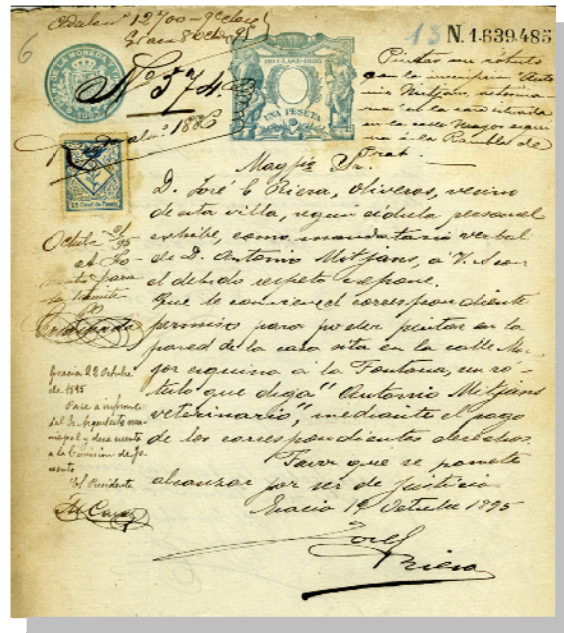 Cedula nº 12700 - 9ª clase
Gracia 8 Octbre 95
6
13 N. 1.639.485
Nº 574
10ª CLASE-1895
UNA PESETA
Pintar un rótulo
con la inscripción Anto
nio Mitjans, veterina
rio en la casa situada
en la calle Mayor esqui
na á la Rambla de
Prat.
Magfco Sr.
D. José C Riera, Oliveros, vecino
de esta villa, según cédula personal
exhibe, como mandatario verbal
de D. Antonio Mitjans, a V. S. con
el debido respeto expone.
Que le conviene el correspondiente
permiso para poder pintar en la
pared de la casa sita en la calle Ma-
yor esquina á la Fontana, un ró-
tulo que diga "Antonio Mitjans
veterinario", mediante el pago
de los correspondientes derechos.
Favor que se promete
alcanzar por ser de justicia
Gracia 19 Octubre 1895
José
Riera
Octbre
al Fo-
mento para
su trámite
Gracia 22 Octubre
de 1895
Pase a informe
del Sr. Arquitecto mu-
nicipal y dese cuenta
a la Comisión de Fo-
mento
El Presidente